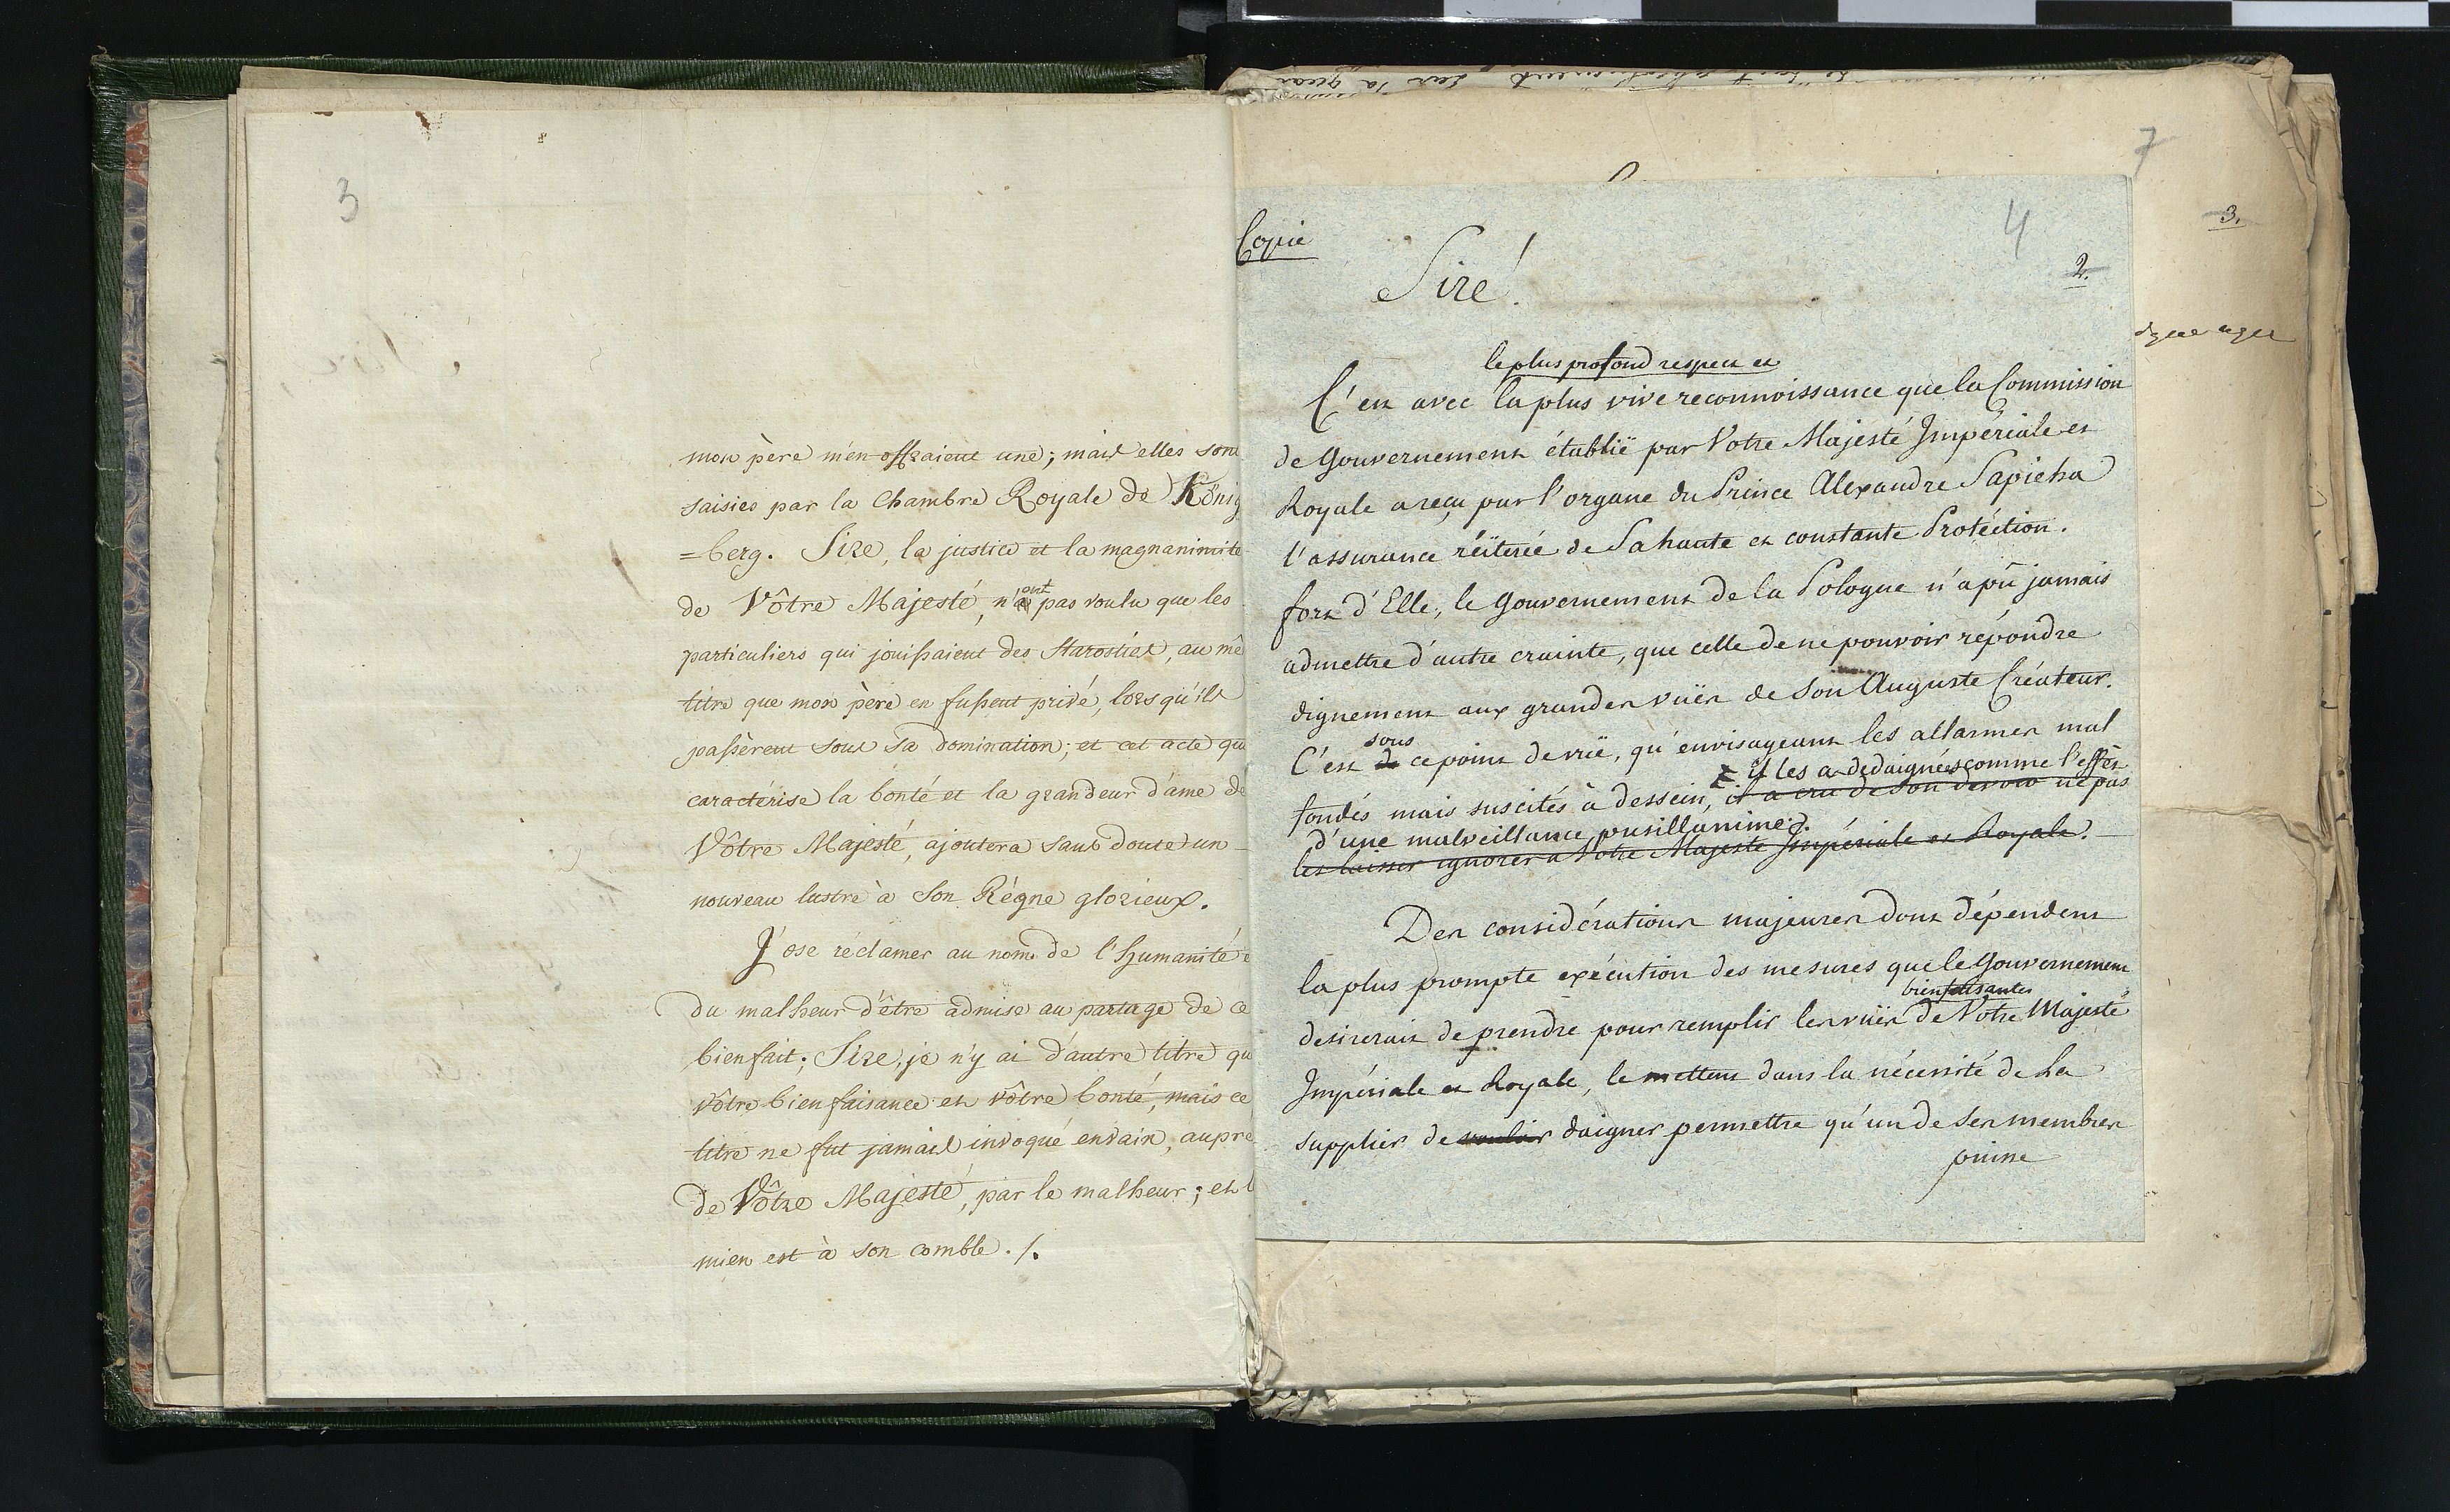 3
mon père m'en offraient une; mais elles sont
saisies par la Chambre Royale de König
=berg. Sire, la justice et la magnanimité
de Vôtre Majesté, n'ont pas voulu que les
particuliers qui jouissaient des Starosties, au mê
titre que mon père en fussent privé, lorsqu'ils
passèrent sous Sa domination; et cet acte qui
caractérise la bonté et la grandeur d'âme de
Vôtre Majesté, ajoutera sans doute un
nouveau lustre à Son Règne glorieux.
J'ose réclamer au nom de l'humanité e
du malheur d'être admise au partage de ce
bienfait; Sire, je n'y ai d'autre titre qu
vôtre bienfaisance et vôtre bonté, mais ce
titre ne fut jamais invoqué envain, aupre
de Vôtre Majesté, par le malheur; et l
mien est à son comble ./.
7
3.
4
2.
Copie
Sire!
le plus profond respect et
C'est avec la plus vive reconnoissance que la Commission
de Gouvernement établïe par Votre Majesté Impériale et
Royale a reçu par l'organe du Prince Alexandre Sapieha
l'assurance réïterée de Sa haute et constante Protéction.
fort d'Elle, le Gouvernement de la Pologne n'a pû jamais
admettre d'autre crainte, que celle de ne pouvoir répondre
dignement aux grandes vuës de Son Auguste Créateur.
sous
C'est de ce point de vüe, qu'envisageant les allarmes mal
il les a dedaignées comme l'effet
fondés mais suscités à dessein, il a cru de son devoir ne pas
d'une malveillance pusillanime.
les laisser ignorer a Votre Majesté Impériale et Royale.
Des considérations majeures dont dépendent
la plus prompte exécution des mesures que le Gouvernement
bienfaisantes
desirerait de prendre pour remplir les vuës de Votre Majesté
Impériale et Royale, le mettent dans la nécessité de La
supplier de vouloir daigner permettre qu'un de Ses membres
puisse